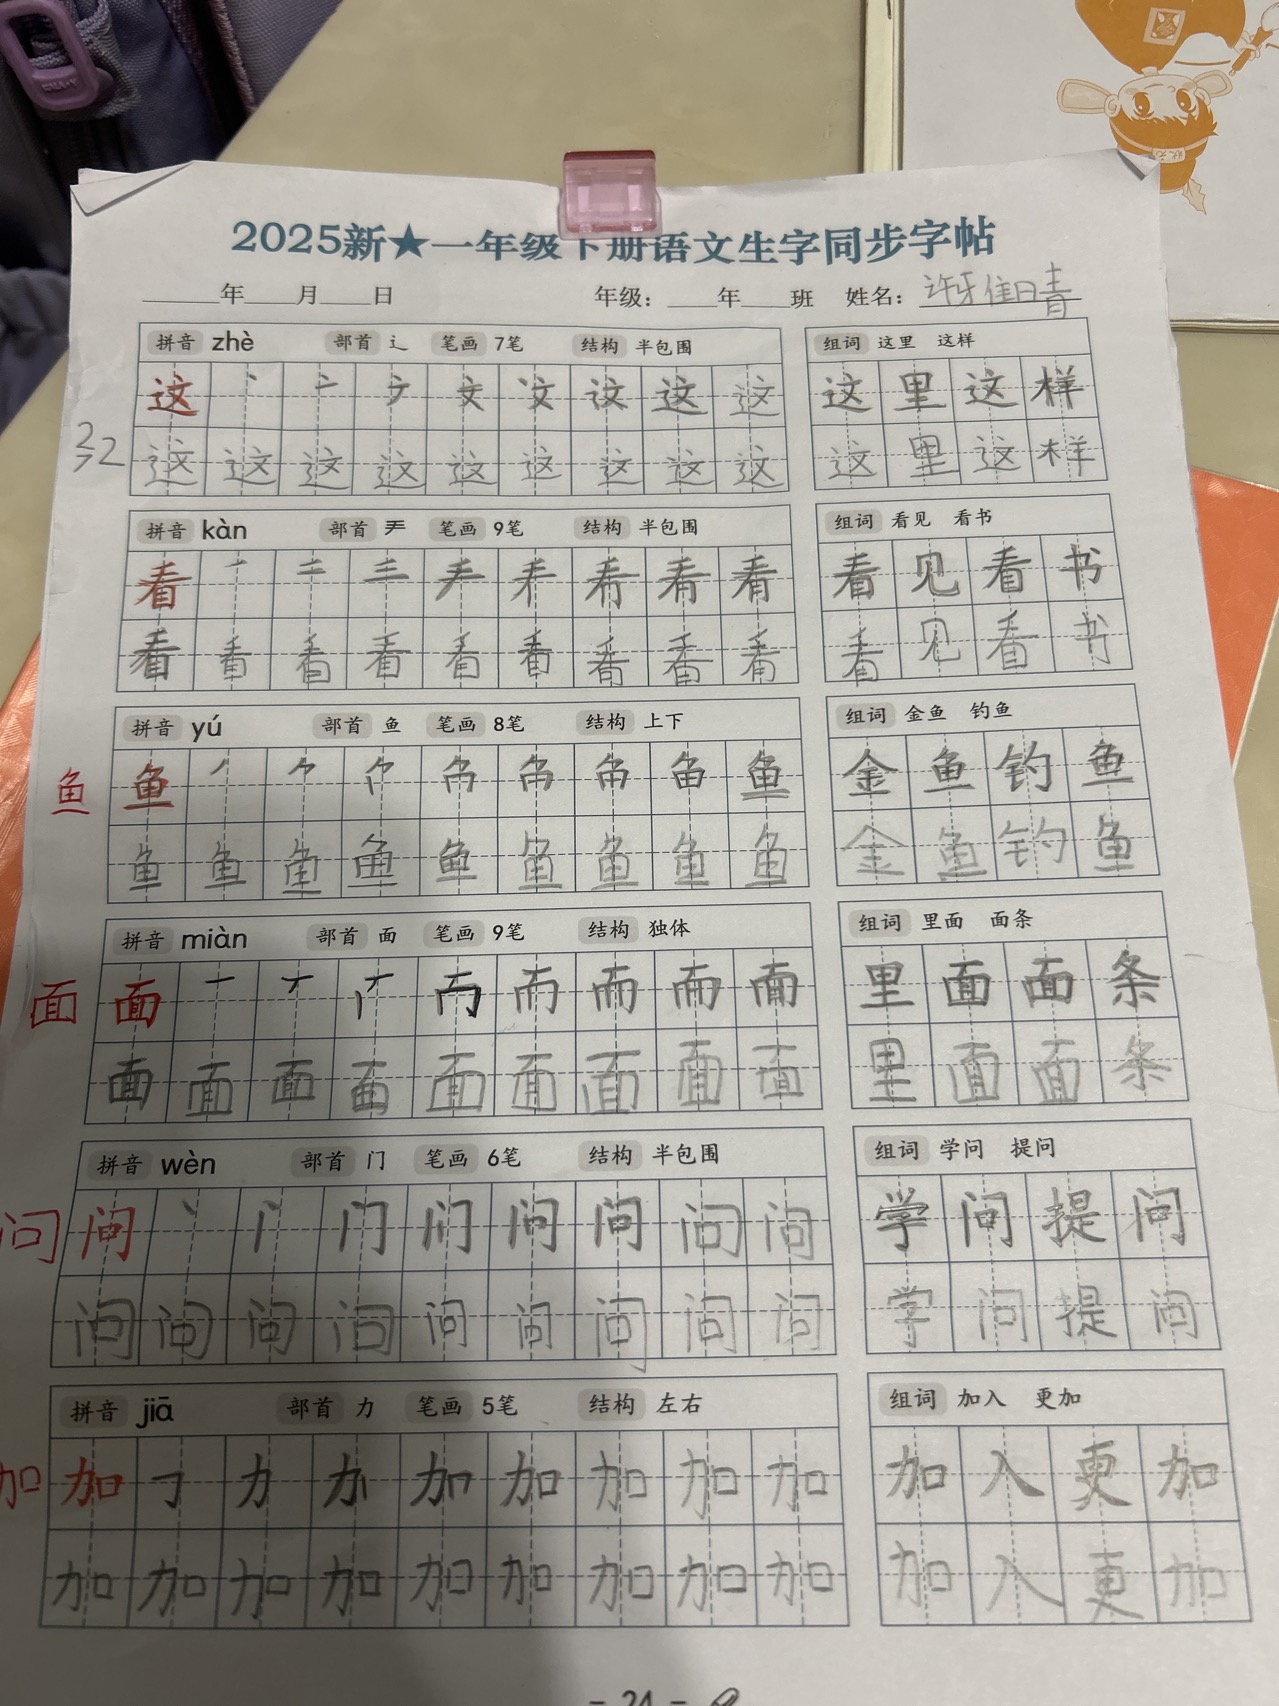 2025新★一年级下册语文生字同步字帖
____年____月____日 年级：____年____班 姓名：许雅晴
拼音 zhè 部首 辶 笔画 7笔 结构 半包围 组词 这里 这样
这 丶 亠 文 文 这 这 这 这 里 这 样
这 这 这 这 这 这 这 这 这 这 里 这 样
拼音 kàn 部首 龵 笔画 9笔 结构 半包围 组词 看见 看书
看 看 见 看 书
看 看 看 看 看 看 看 看 看 看 见 看 书
拼音 yú 部首 鱼 笔画 8笔 结构 上下 组词 金鱼 钓鱼
鱼 鱼 鱼 金 鱼 钓 鱼
鱼 鱼 鱼 鱼 鱼 鱼 鱼 鱼 鱼 金 鱼 钓 鱼
拼音 miàn 部首 面 笔画 9笔 结构 独体 组词 里面 面条
面 面 一 丆 而 而 里 面 面 条
面 面 面 面 面 面 面 面 面 里 面 面 条
拼音 wèn 部首 门 笔画 6笔 结构 半包围 组词 学问 提问
问 问 丶 门 问 问 问 问 学 问 提 问
问 问 问 问 问 问 问 问 问 学 问 提 问
拼音 jiā 部首 力 笔画 5笔 结构 左右 组词 加入 更加
加 加 力 加 加 加 加 加 加 入 更 加
加 加 加 加 加 加 加 加 加 加 入 更 加
- 24 -